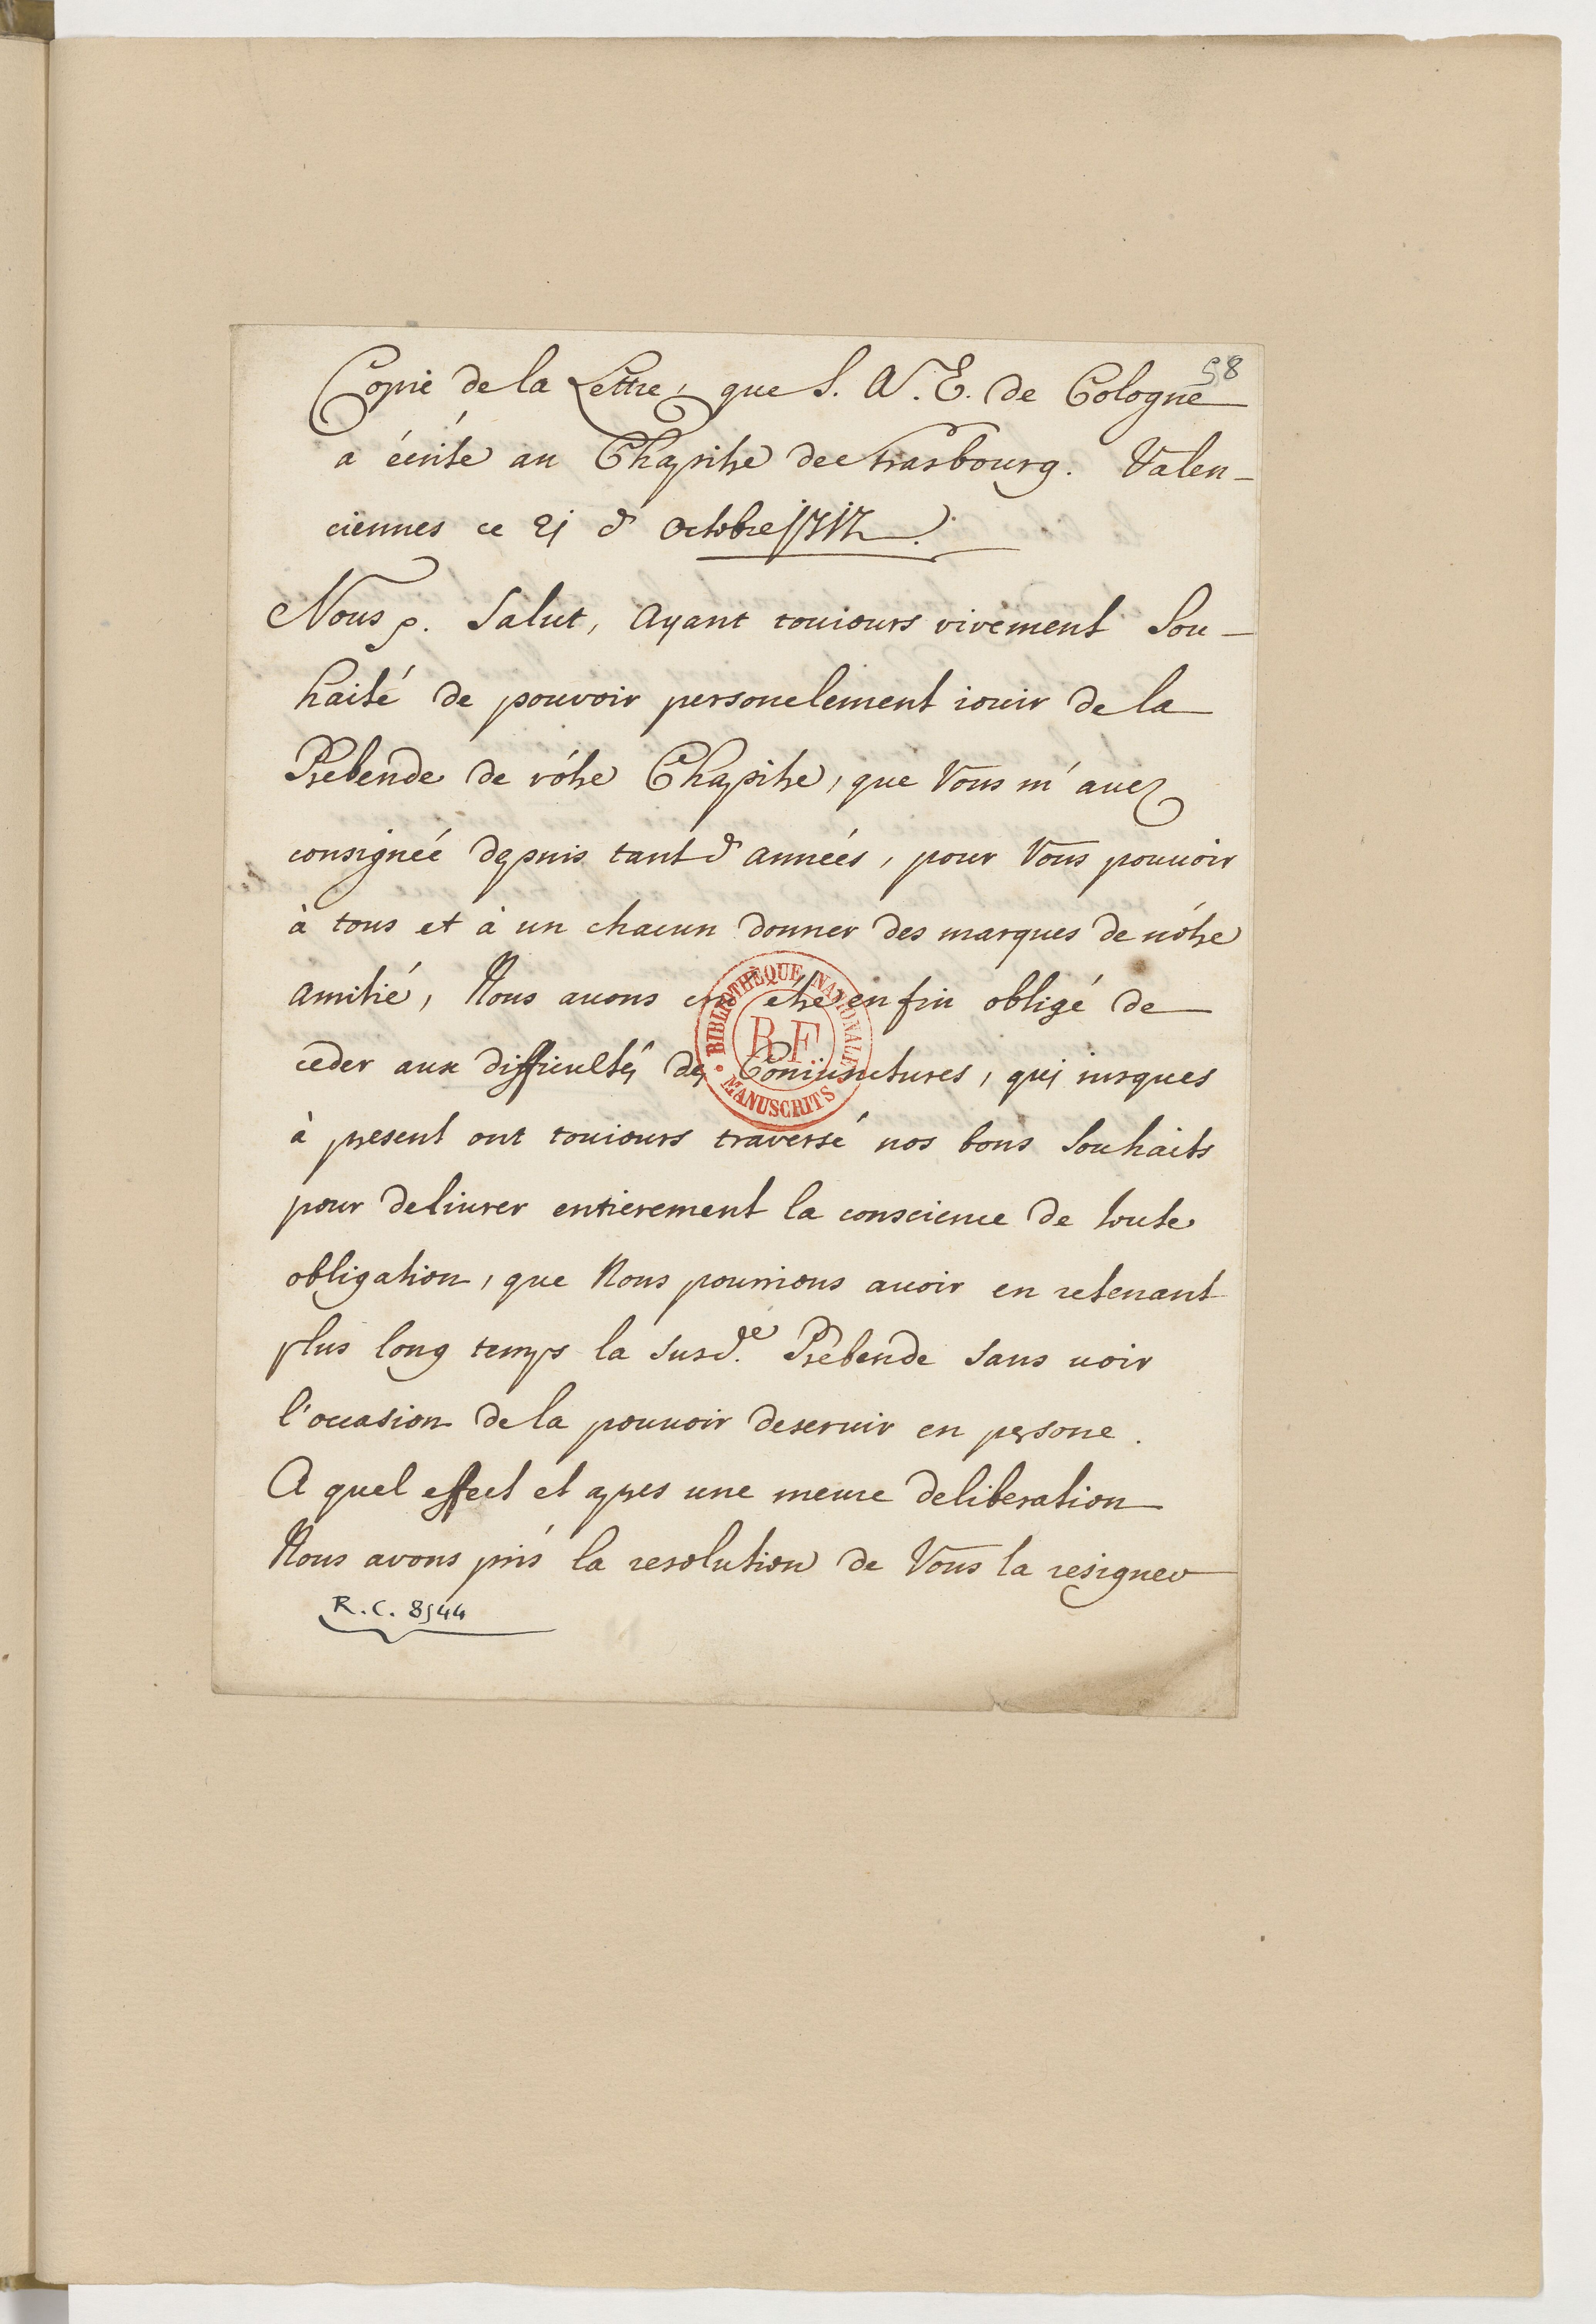 58
Copie de la Lettre, que S. A. E. de Cologne
a écrite au Chapitre de Strasbourg. Valen-
ciennes ce 21 d' Octobre 1712
Nous p. Salut, Ayant touiours vivement Sou-
haité de pouvoir personelement iouir de la
Prebende de vôtre Chapitre, que Vous m'auez
consignéé depuis tant d'annéés, pour Vous pouuoir
à tous et à un chacun donner des marques de nôtre
amitié, Nous auons cru être enfin obligé de
ceder aux difficultés des Coniunctures, qui iusques
à present ont touiours traversé nos bons Souhaits
pour deliurer entierement la conscience de toute
obligation, que Nous pourrions auoir en retenant
plus long temps la susd.e Prebende Sans uoir
l'occasion de la pouuoir deseruir en persone.
A quel effect et apres une meure deliberation
Nous avons pris la resolution de Vous la resigner
R.C. 8544
BIBLIOTHÈQUE NATIONALE
R.F.
MANUSCRITS